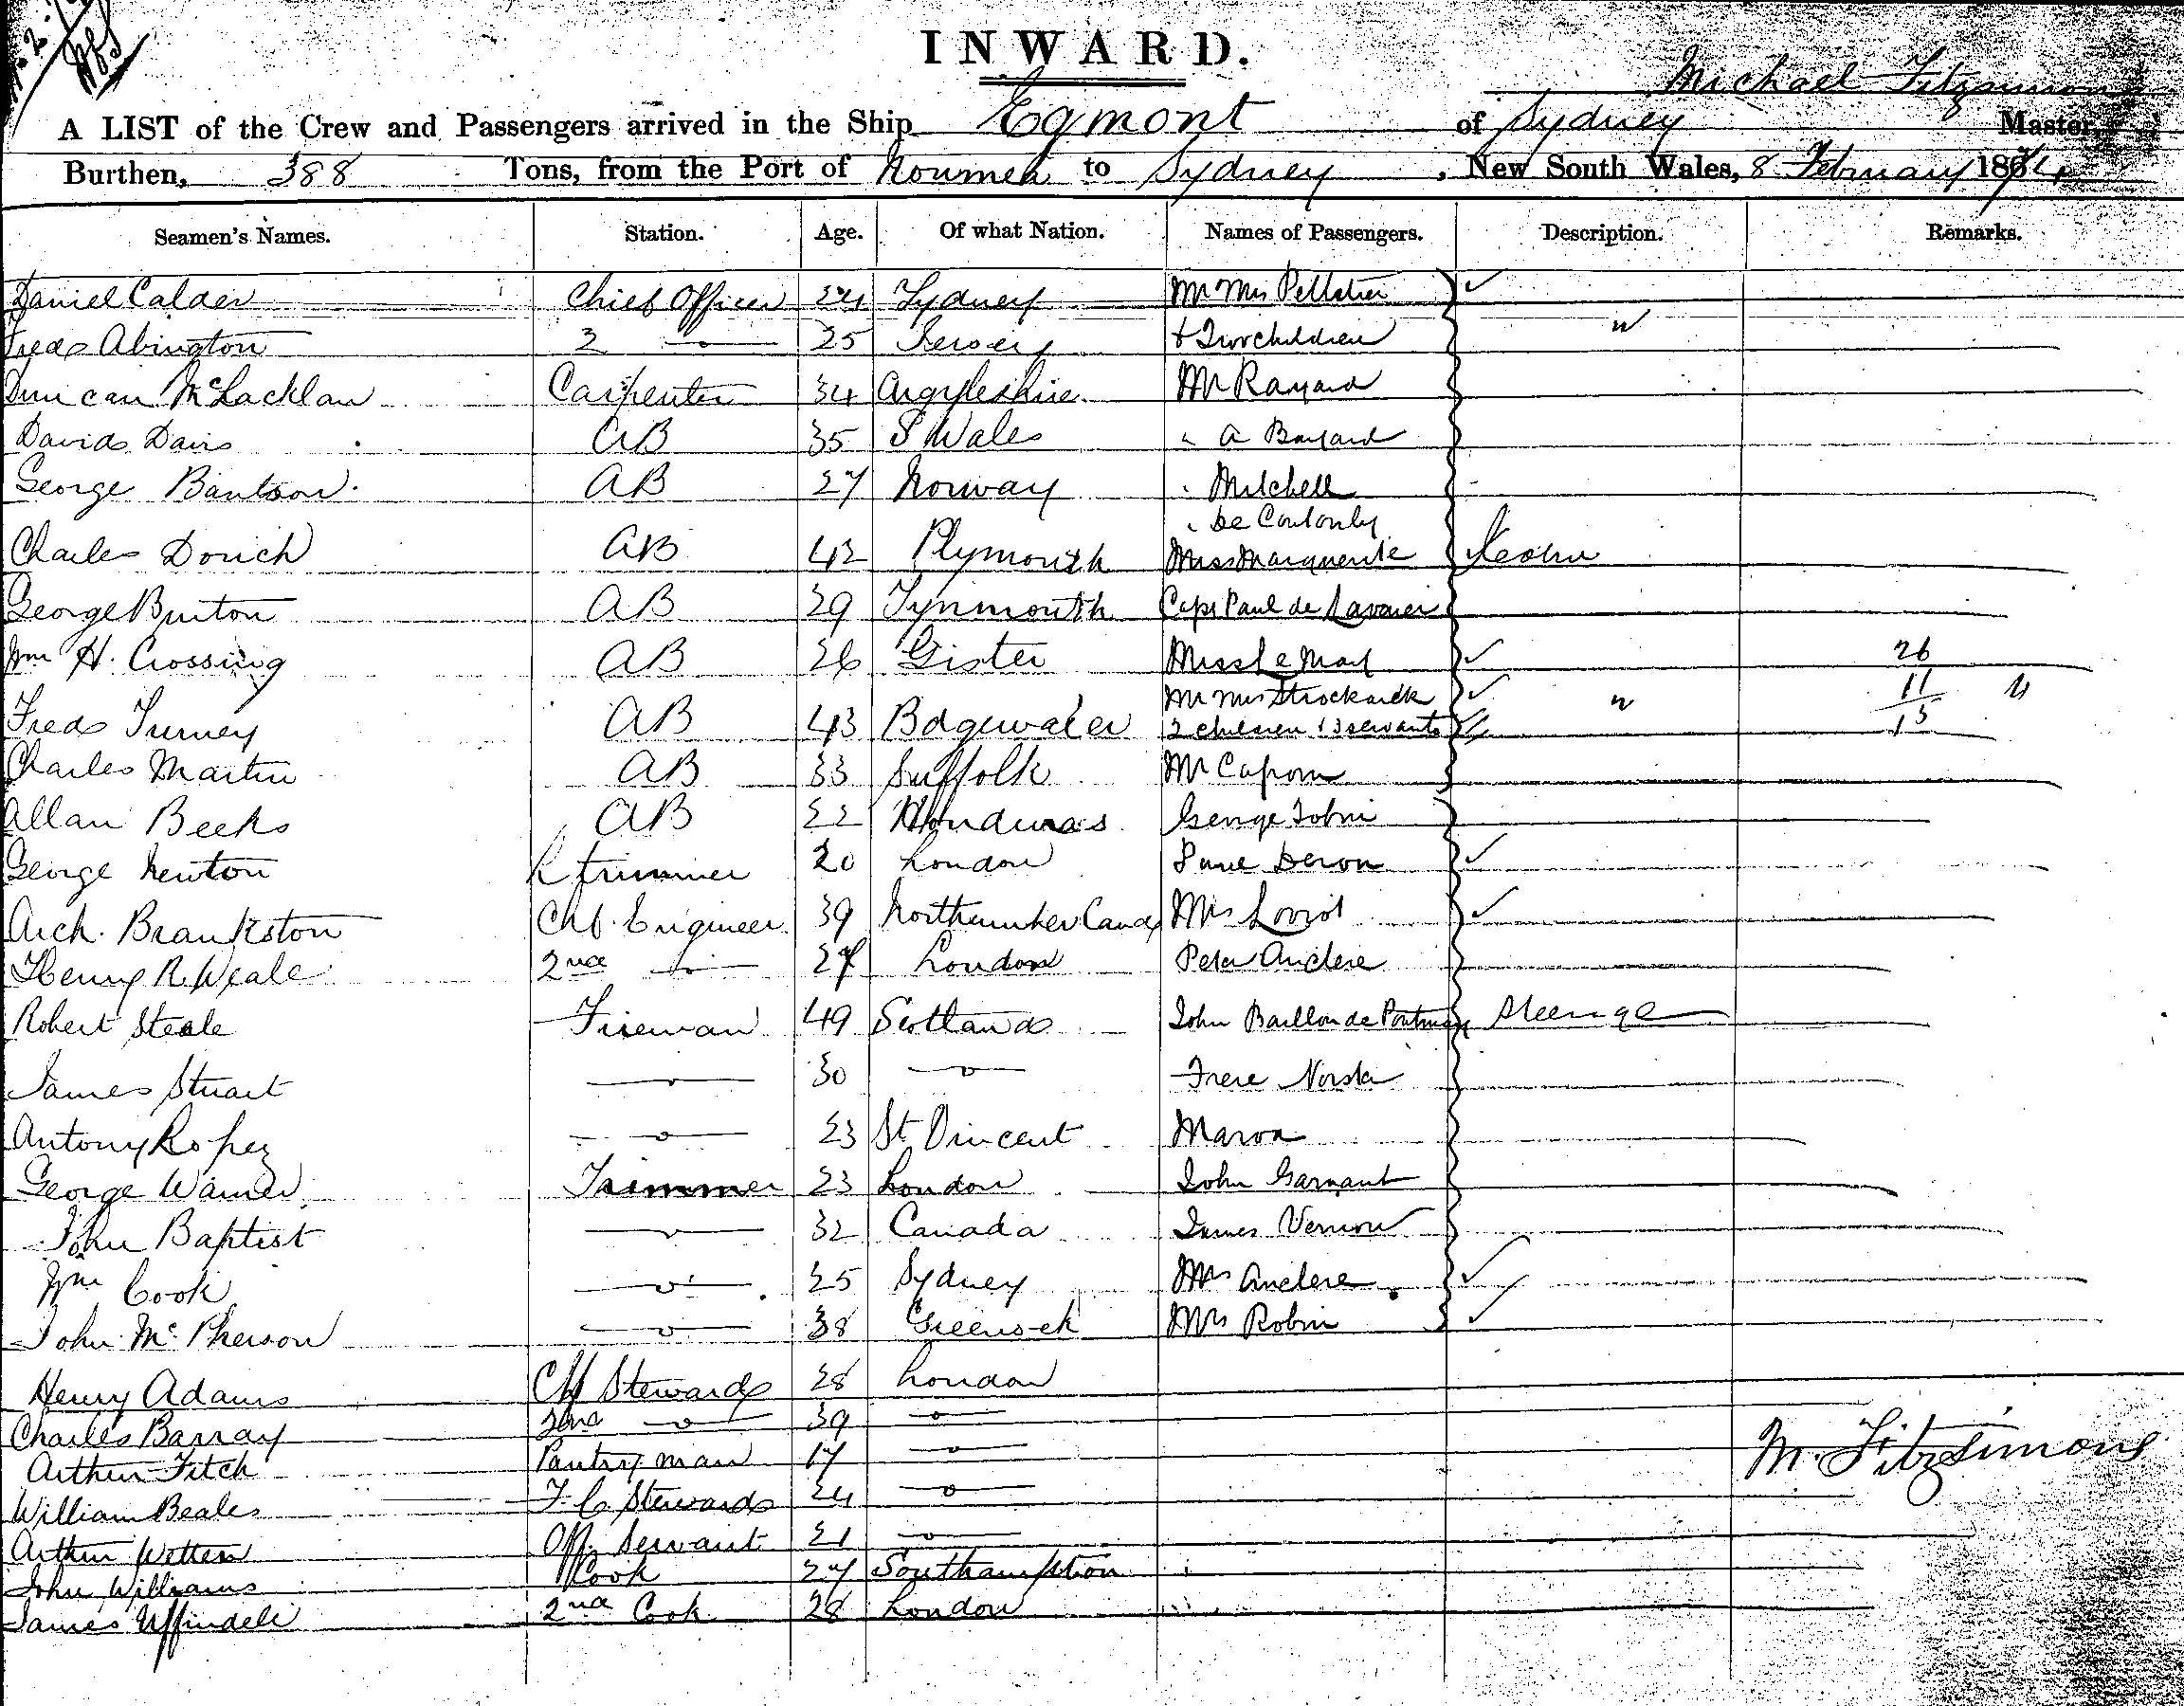 INWARD.
Michael Fitzsimons
A LIST of the Crew and Passengers arrived in the Ship Egmont of Sydney Master,
Burthen, 388 Tons, from the Port of Noumea to Sydney, New South Wales, 8 February 1874
Seamen's Names. Station. Age. Of what Nation. Names of Passengers. Description. Remarks.
Daniel Calder Chief Officer 24 Sydney Mr Mrs Pelletier
Fredk Abington 2 25 Jersey & Two children
Duncan McLachlan Carpenter 34 Argyleshire Mr Rayard
David Davis AB 35 S Wales A Bayard
George AB 27 Norway Mitchell
De
Charles Dorich AB 42 Plymouth Miss Marguerite
George Burton AB 29 Tynmouth Capt Paul de
Wm H. Crossing AB 26 Miss Le 26
Mr Mrs 11
Fredk Turney AB 43 Bdgewater 2 children & 3 servants 15
Charles Martin AB 33 Suffolk Mr
Allan Beeks AB 22 Honduras George Tobin
George Newton trimmer 20 London
Arch. Brankston Chf. Engineer 39 Northumberland Mrs
Henry R. Weale 2nd 27 London Peter
Robert Steele Fireman 49 Scotland John Baillon de Steerage
James Stuart 30 Frere
Antony Lopez 23 St Vincent
George Warner Trimmer 23 London John
John Baptist 32 Canada James Vernon
Wm Cook 25 Sydney
John McPherson 38 Greenock Mrs Robin
Henry Adams Chf Steward 28 London
Charles Barray 2nd 39
Arthur Fitch Pantry man 17 M. Fitzsimons
William Beales F. C. Steward 24
Arthur Off. Servant 21
John Williams Cook 27 Southampton
James Uffindell 2nd Cook 28 London